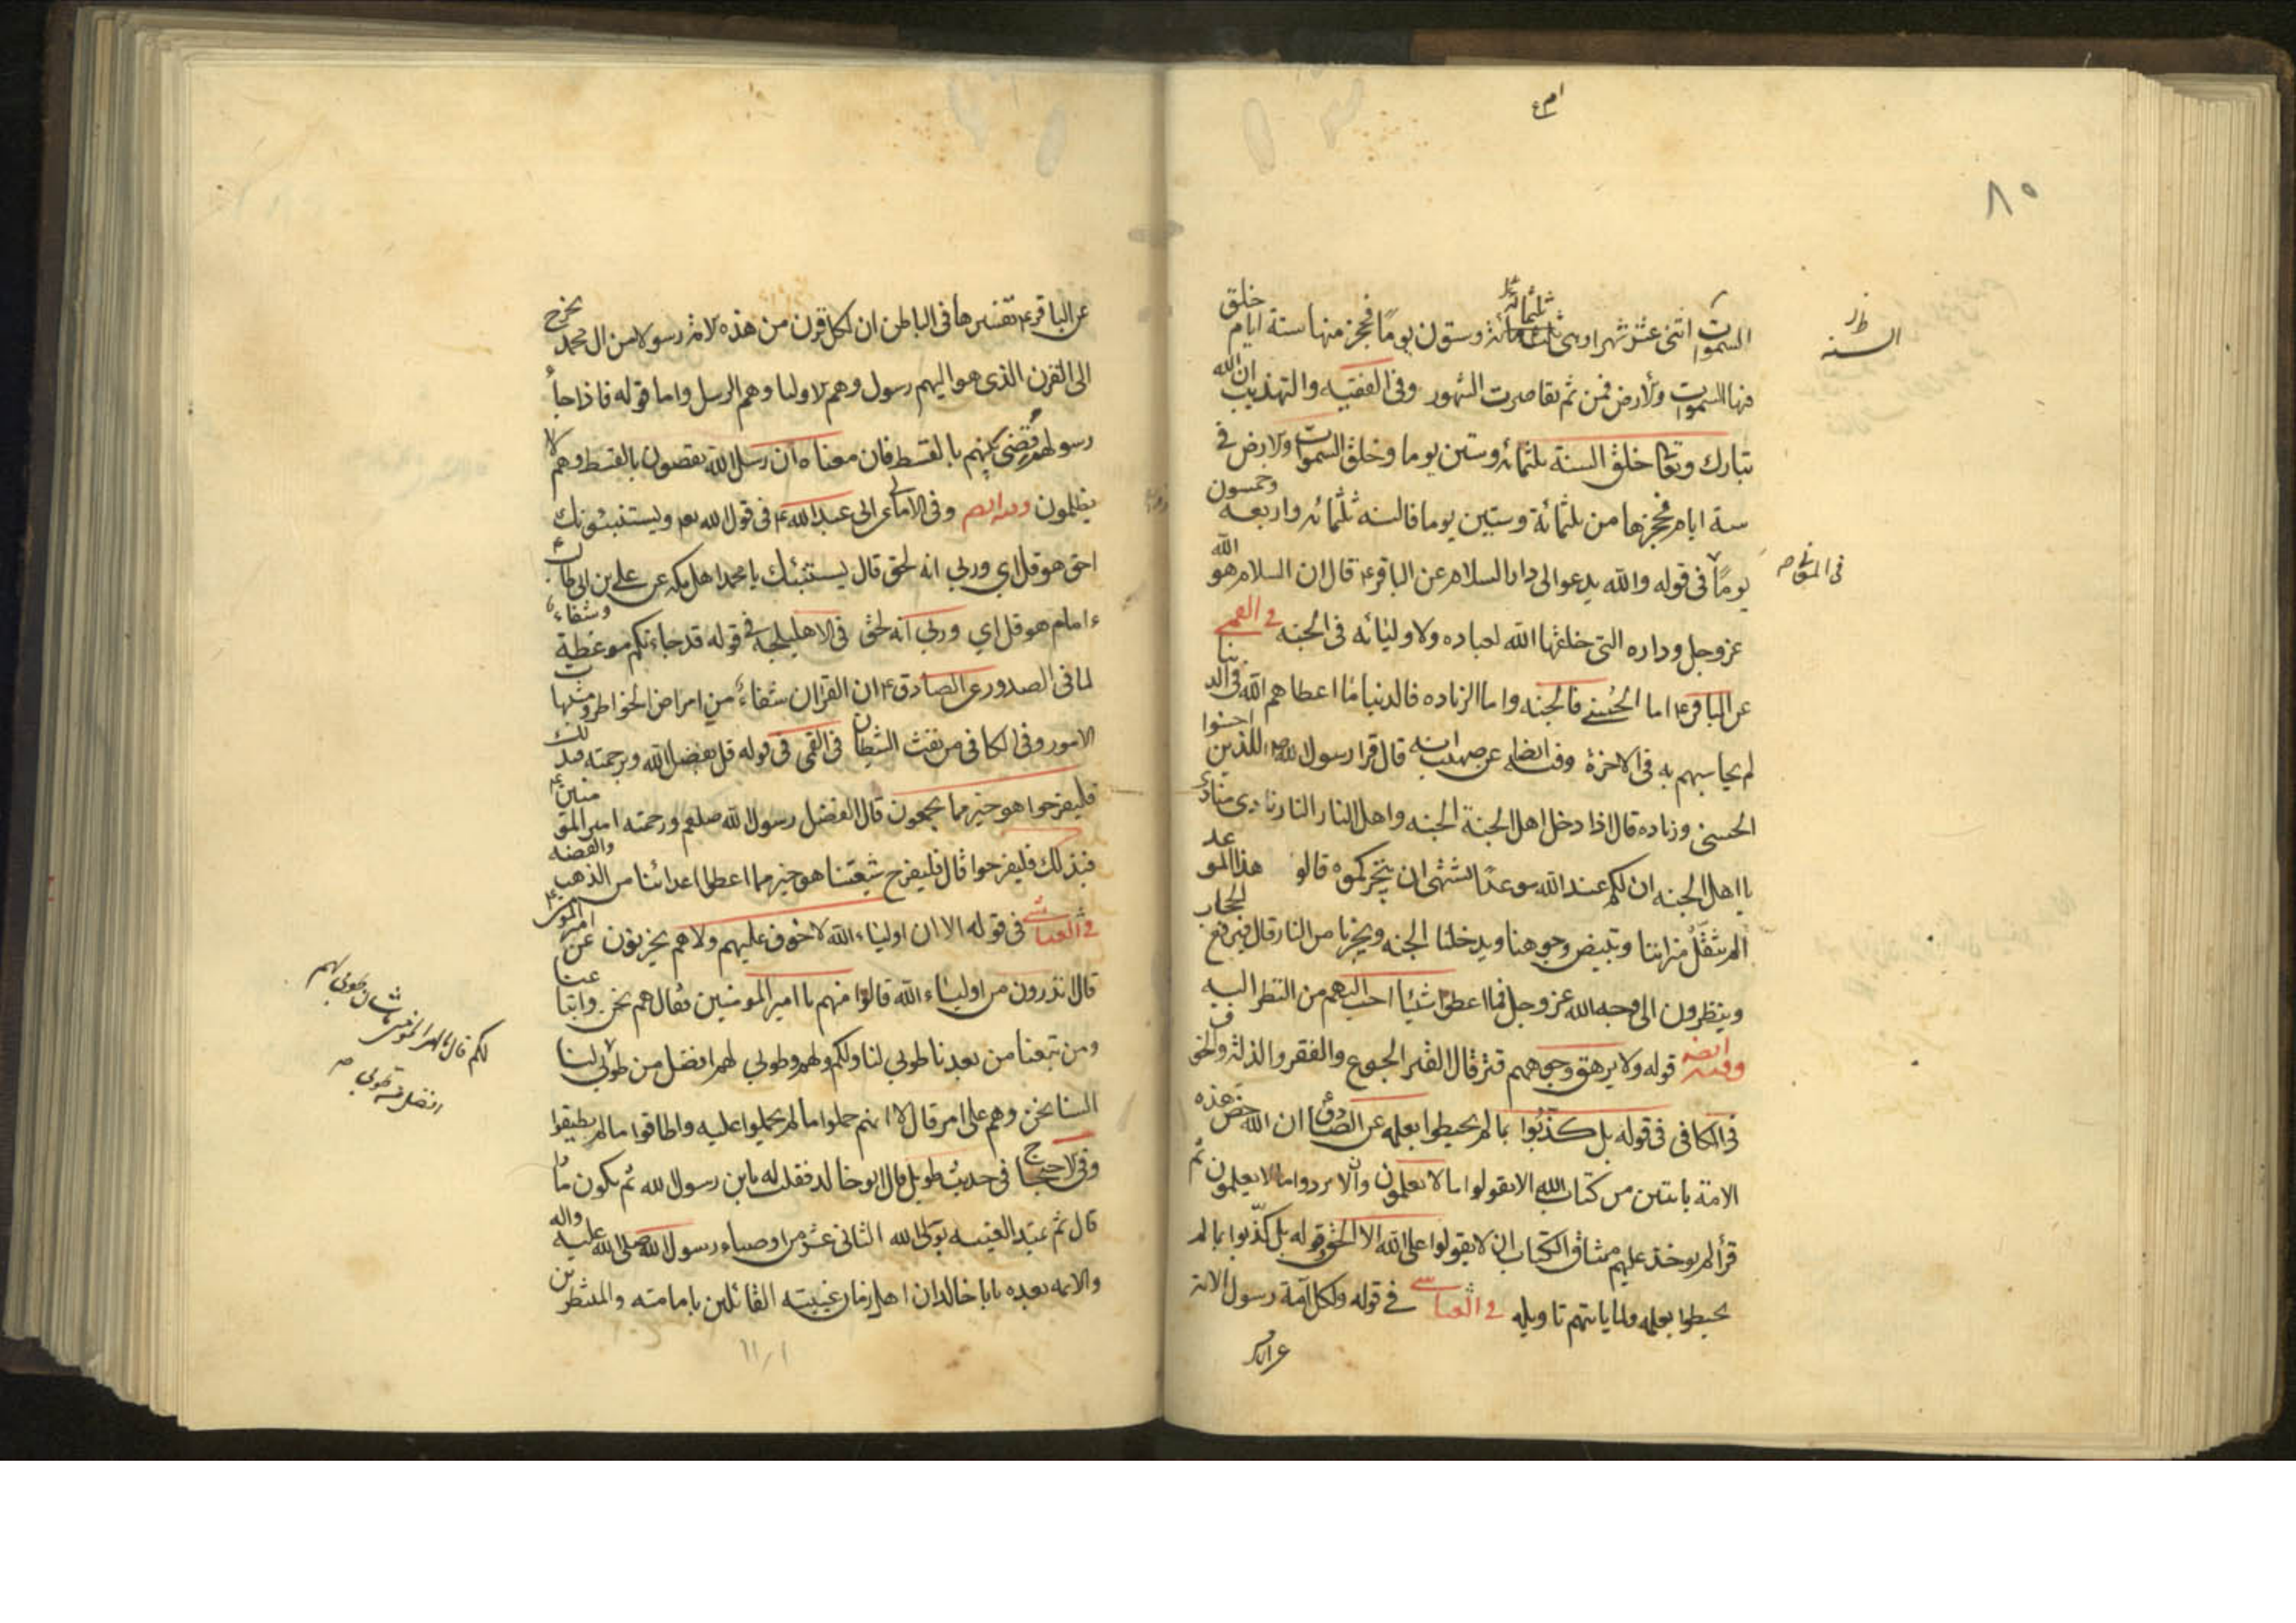 ام ع
٨٥
السموات اثنى عشر شهرا وهى ثلثمائة وستون يومًا فحجز منها ستة ايام خلق
السنه
فيها السموات والارض فمن ثم تقاصرت الشهور وفى الفقيه والتهذيب ان الله
تبارك وتعا خلق السنة ثلثمائة وستين يوما وخلق السموات والارض فى
ستة ايام فحجزها من ثلثمائة وستين يوما فالسنه ثلثمائة واربعه وخمسون
يومًا فى قوله والله يدعو الى دار السلام عن الباقر ع قال ان السلام هو الله
عز وجل وداره التى خلقها الله لعباده ولاوليائه فى الجنه فى القمى
عن الباقر ع اما الحسنى فالجنه واما الزياده فالدنيا ما اعطاهم الله فى الدنيا
لم يحاسبهم به فى الاخرة قال قرا رسول الله ص للذين احسنوا
الحسنى وزياده قال اذا دخل اهل الجنة الجنه واهل النار النار نادى مناد
يا اهل الجنه ان لكم عند الله موعدًا يشتهى ان ينجزكموه قالو هذا الموعد
الم يثقّل موازيننا ويبيض وجوهنا ويدخلنا الجنه ويجرنا من النار قال فيرفع الحجاب
وينظرون الى وجه الله عز وجل فما اعطوا شيئا احب اليهم من النظر اليه
وفيه ايضه قوله ولا يرهق وجوههم قتر قال القتر الجوع والفقر والذلة والخوف
فى الكافى فى قوله بل كذّبوا بما لم يحيطوا بعلمه عن الصادق ان الله خص هذه
الامة بايتين من كتاب الله الا يقولوا ما لا يعلمون والا يردوا ما لا يعلمون ثم
قرأ الم يوخذ عليهم ميثاق الكتاب ان لا يقولوا على الله الا الحق وقوله بل كذّبوا بما لم
يحيطوا بعلمه ولما ياتهم تاويله فى العياشى فى قوله ولكل امة رسول الاية
عن الباقر
عن الباقر ع تفسيرها فى الباطن ان لكل قرن من هذه الامة رسولا من ال محمد يخرج
الى القرن الذى هو اليهم رسول وهم الاوليا وهم الرسل واما قوله فاذا جاء
رسولهم قضى بينهم بالقسط فان معناه ان رسل الله يقضون بالقسط وهم لا
يظلمون وفى الامالى عن ابى عبد الله ع فى قول الله تعم ويستنبئونك
احق هو قل اى وربى انه لحق قال يستنبئك يا محمد اهل مكه عن على بن ابى طالب
ع امام هو قل اى وربى انه لحق فى الاهليلجيه فى قوله قد جاءتكم موعظة وشفاء
لما فى الصدور عن الصادق ع ان القران شفاء من امراض الخواطر ومشتبهات
الامور وفى الكافى من نفث الشيطان فى القمى فى قوله قل بفضل الله وبرحمته فبذلك
فليفرحوا هو خير مما يجمعون قال الفضل رسول الله صلعم ورحمته امير المؤمنين ع
فبذلك فليفرحوا قال فليفرح شيعتنا هو خير مما اعطا اعدائنا من الذهب والفضه
فى العياشى فى قوله الا ان اولياء الله لا خوف عليهم ولا هم يحزنون عن امير المؤمنين ع
قال تدرون من اولياء الله قالوا منهم يا امير المومنين فقال هم نحن واتباعنا
ومن تبعنا من بعدنا طوبى لنا ولكم ولهم وطوبى لهم افضل من طوبى لنا
السنا نحن وهم على امر قال لا انهم حملوا ما لم يحملوا عليه واطاقوا ما لم يطيقوا
وفى الاحتجاج فى حديث طويل قال ابو خالد فقلت له يابن رسول الله ثم يكون ماذا
قال ثم تمتد الغيبه بولى الله الثانى عشر من اوصياء رسول الله صلى الله عليه واله
والائمه بعده يابا خالد ان اهل زمان غيبته القائلين بامامته والمنتظرين